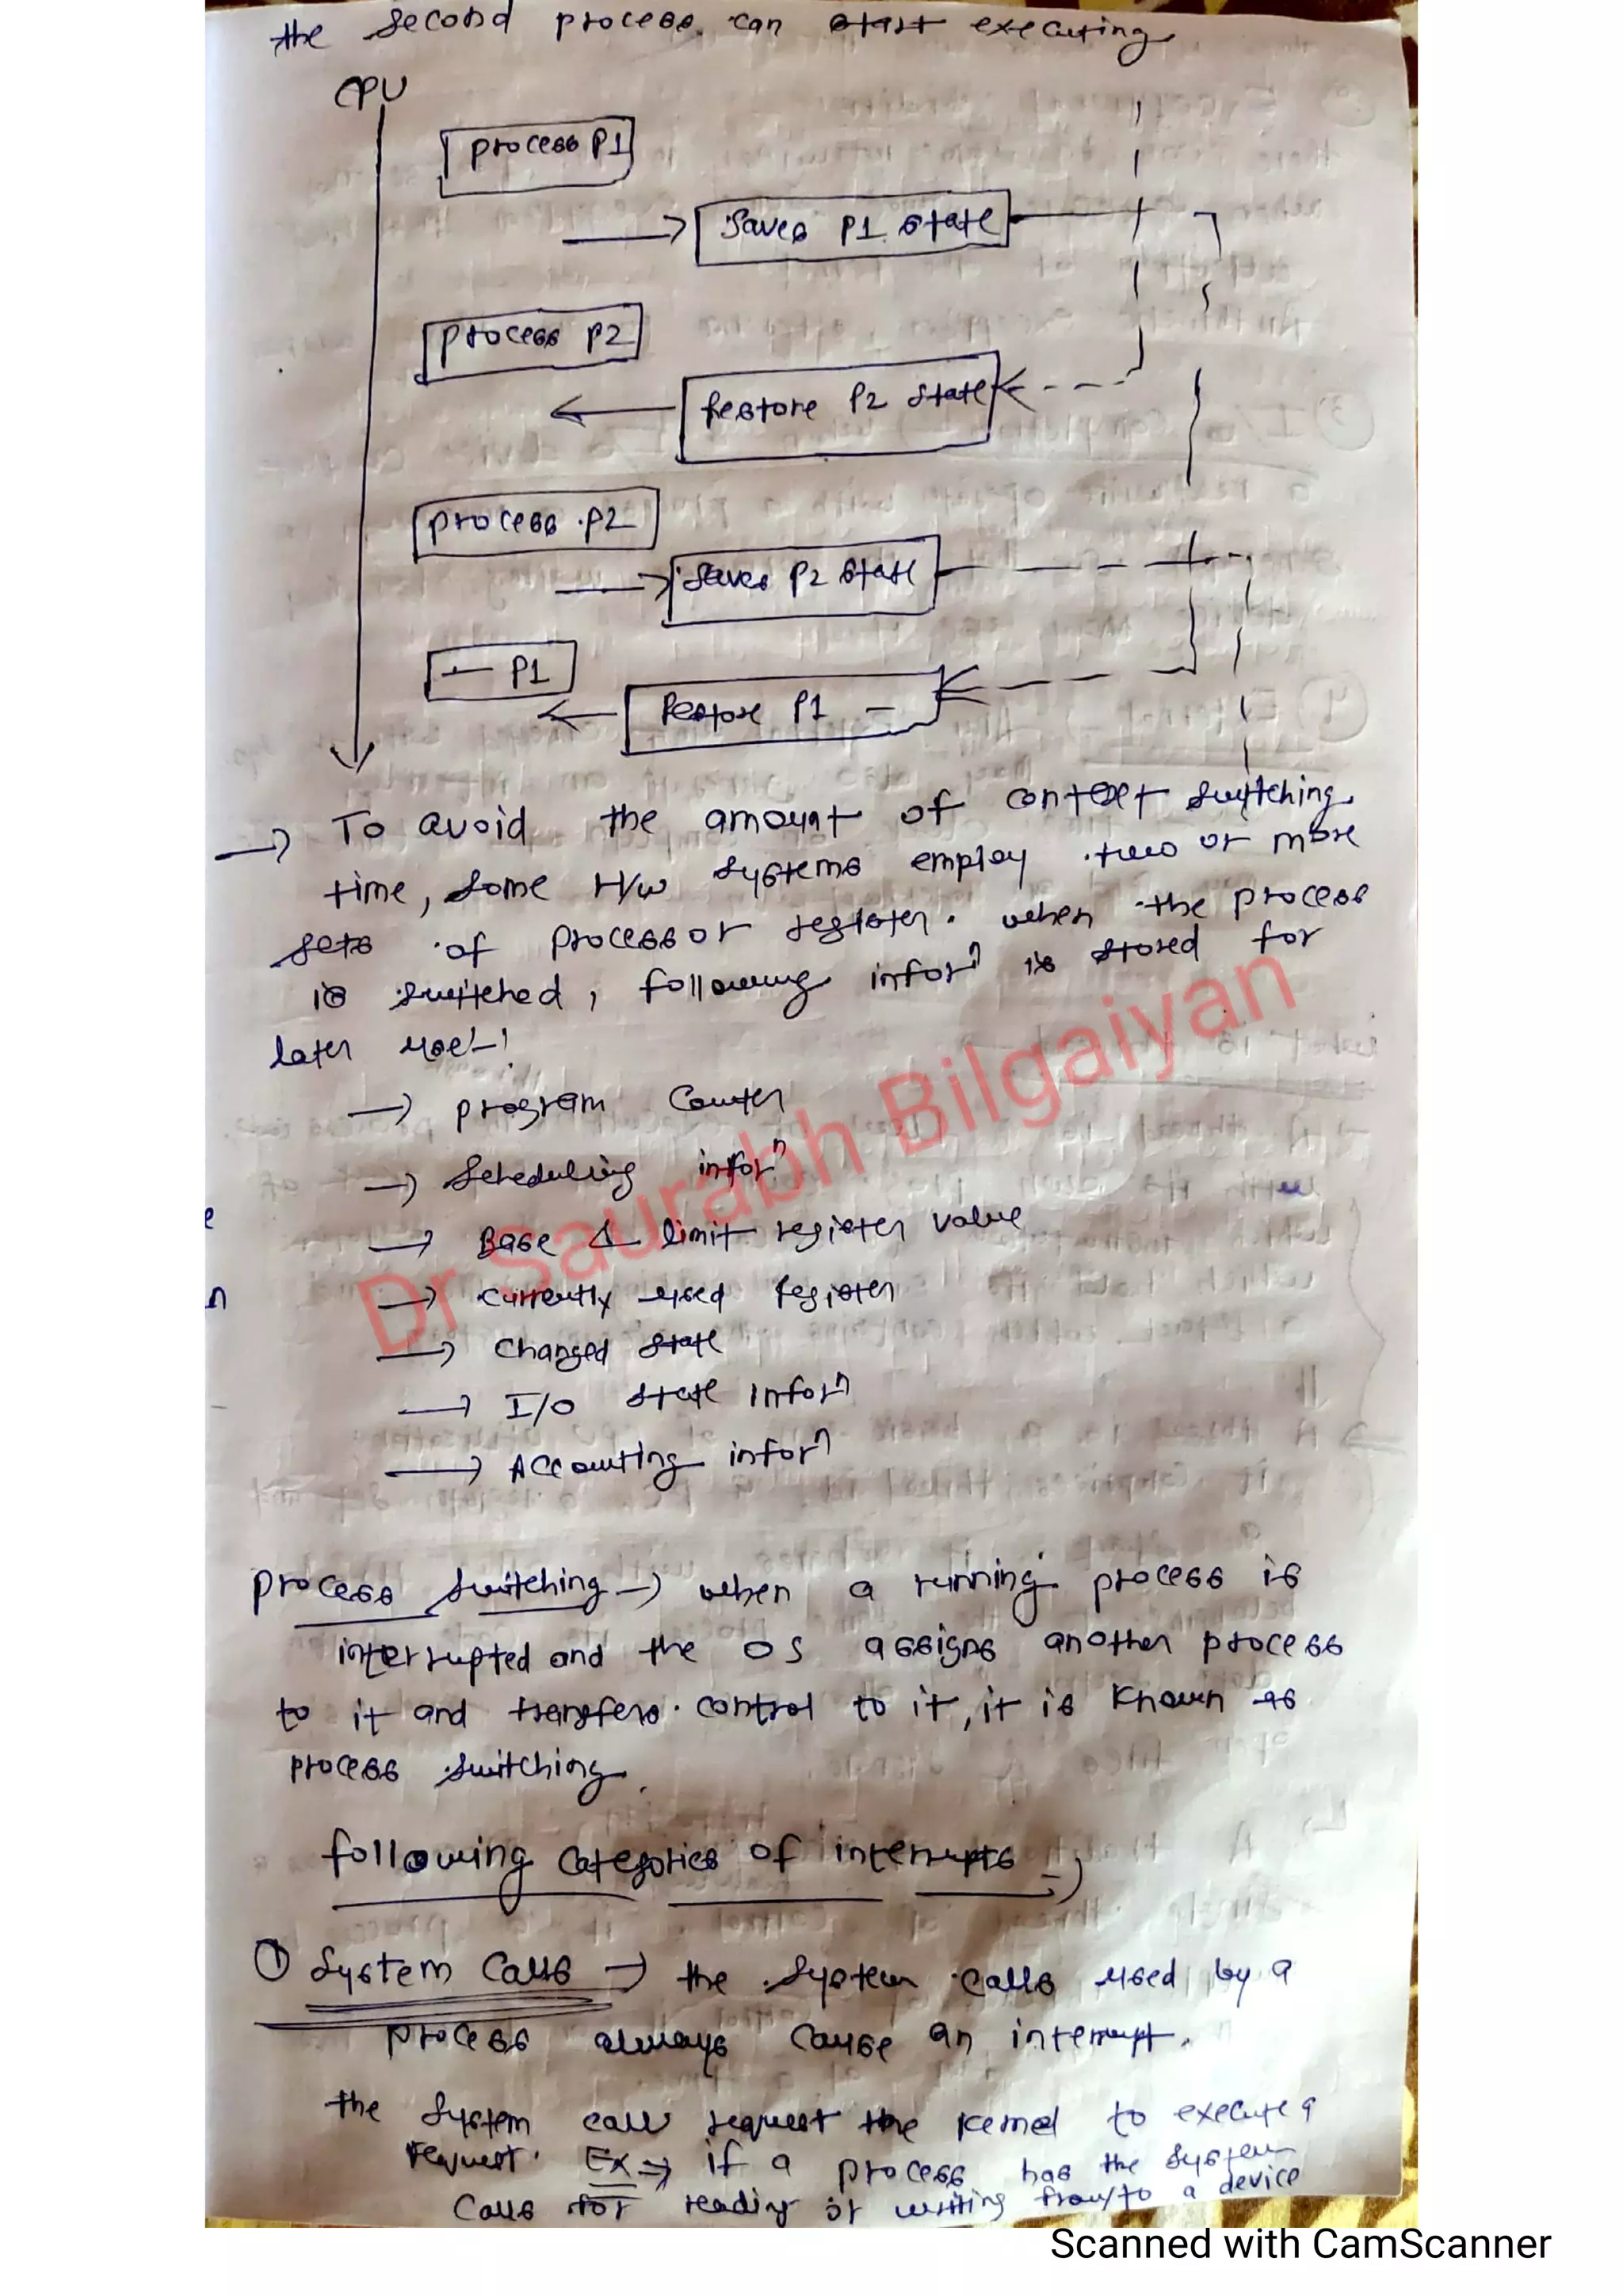 the second process can start executing
CPU
process P1
Saves P1 state
process P2
Restore P2 state
process P2
Saves P2 state
— P1
Restore P1 —
→ To avoid the amount of context switching
time, some H/w systems employ two or more
sets of processor register. when the process
is switched, following inforⁿ is stored for
later use:-
→ program Counter
→ Scheduling inforⁿ
→ Base & limit register value
→ currently used register
→ Changed state
→ I/O state inforⁿ
→ Accounting inforⁿ
Dr Saurabh Bilgaiyan
process switching → when a running process is
interrupted and the OS assigns another process
to it and transfers control to it, it is known as
process switching.
following categories of interrupts →
① System Calls → the system calls used by a
process always cause an interrupt.
the system call request the kernel to execute a
request. Ex ⇒ if a process has the system
Calls for reading or writing from/to a device
Scanned with CamScanner